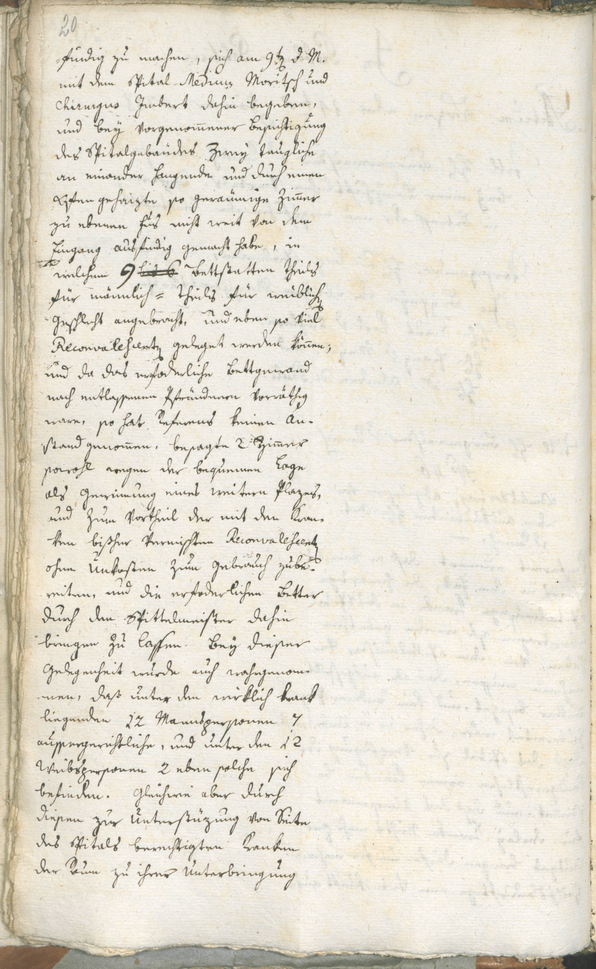 20
fündig zu machen, sich am 9t d. M.
mit dem Spital Medicus Moritsch und
Chirurgus Imbert dahin begeben,
und bey vorgenommener Besichtigung
des Spitalgebäudes zwey taugliche
an einander hangende und durch einen
Ofen geheizte so geraumige Zimmer
zu ebenen Fus nicht weit von dem
Eingang ausfindig gemacht habe, in
welchen 9 bis 6 Bettstatten theils
für männlich= theils für weiblich
Geschlecht angebracht, und eben so viel
Reconvalescent geleget werden können;
und da das erforderliche Bettgewand
nach entlassenen Pfründnern vorräthig
ware, so hat Referens keinen An-
stand genommen, besagte 2 Zimmer
sowohl wegen der bequemen Lage
als Gewinnung eines weitern Plazes,
und zum Vortheil der mit den Kran-
ken bisher vermischten Reconvalescent
ohne Unkosten zum Gebrauch zube-
reiten, und die erforderlichen Better
durch den Spittelmeister dahin
bringen zu lassen. Bey dieser
Gelegenheit wurde auch wahrgenom-
men, daß unter den wirklich krank
liegenden 12 Mannspersonen 7
aussergerichtliche, und unter den 12
Weibspersonen 2 eben solche sich
befinden. Gleichwie aber durch
diesen zur Unterstüzung von Seite
des Spitals berechtigten Kranken
der Raum zu ihrer Unterbringung